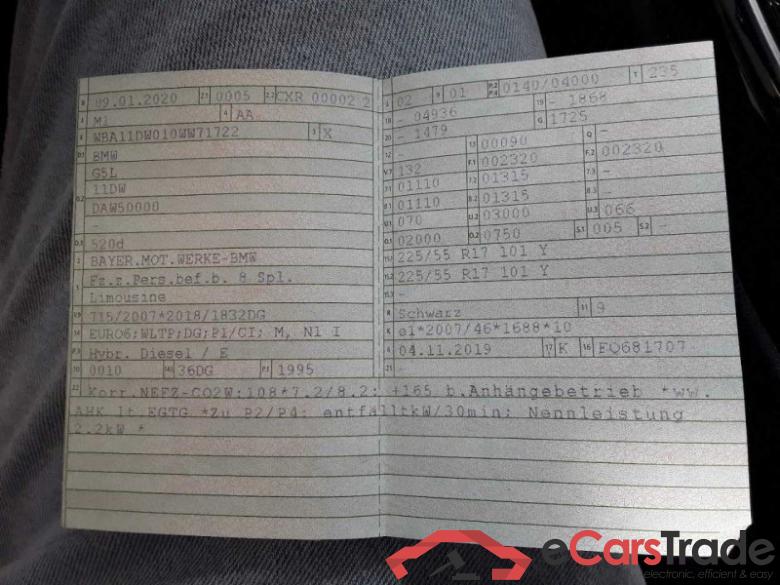 B 09.01.2020 2.1 0005 2.2 CXR 00002 2
J M1 4 AA
E WBA11DW010WW71722 3 X
D.1 BMW
G5L
D.2 11DW
DAW50000
-
D.3 520d
2 BAYER.MOT.WERKE-BMW
5 Fz.z.Pers.bef.b. 8 Spl.
Limousine
V.9 715/2007*2018/1832DG
14 EURO6;WLTP;DG;PI/CI; M, N1 I
P.3 Hybr. Diesel / E
10 0010 14.1 36DG P.1 1995
L 02 9 01 P.2 P.4 0140/04000 T 235
18 - 04936 19 - 1868
20 - 1479 G 1725
12 - 13 00090 Q -
V.7 132 F.1 002320 F.2 002320
7.1 01110 7.2 01315 7.3 -
8.1 01110 8.2 01315 8.3 -
U.1 070 U.2 03000 U.3 066
O.1 02000 O.2 0750 S.1 005 S.2 -
15.1 225/55 R17 101 Y
15.2 225/55 R17 101 Y
15.3 -
R Schwarz 11 9
K e1*2007/46*1688*10
6 04.11.2019 17 K 16 FQ681707
21 -
22 Korr.NEFZ-CO2W:108*7.2/8.2: +165 b.Anhängebetrieb *ww.
AHK lt.EGTG *Zu P2/P4: entfälltkW/30min: Nennleistung
2.2kW *
eCarsTrade
electronic, efficient & easy